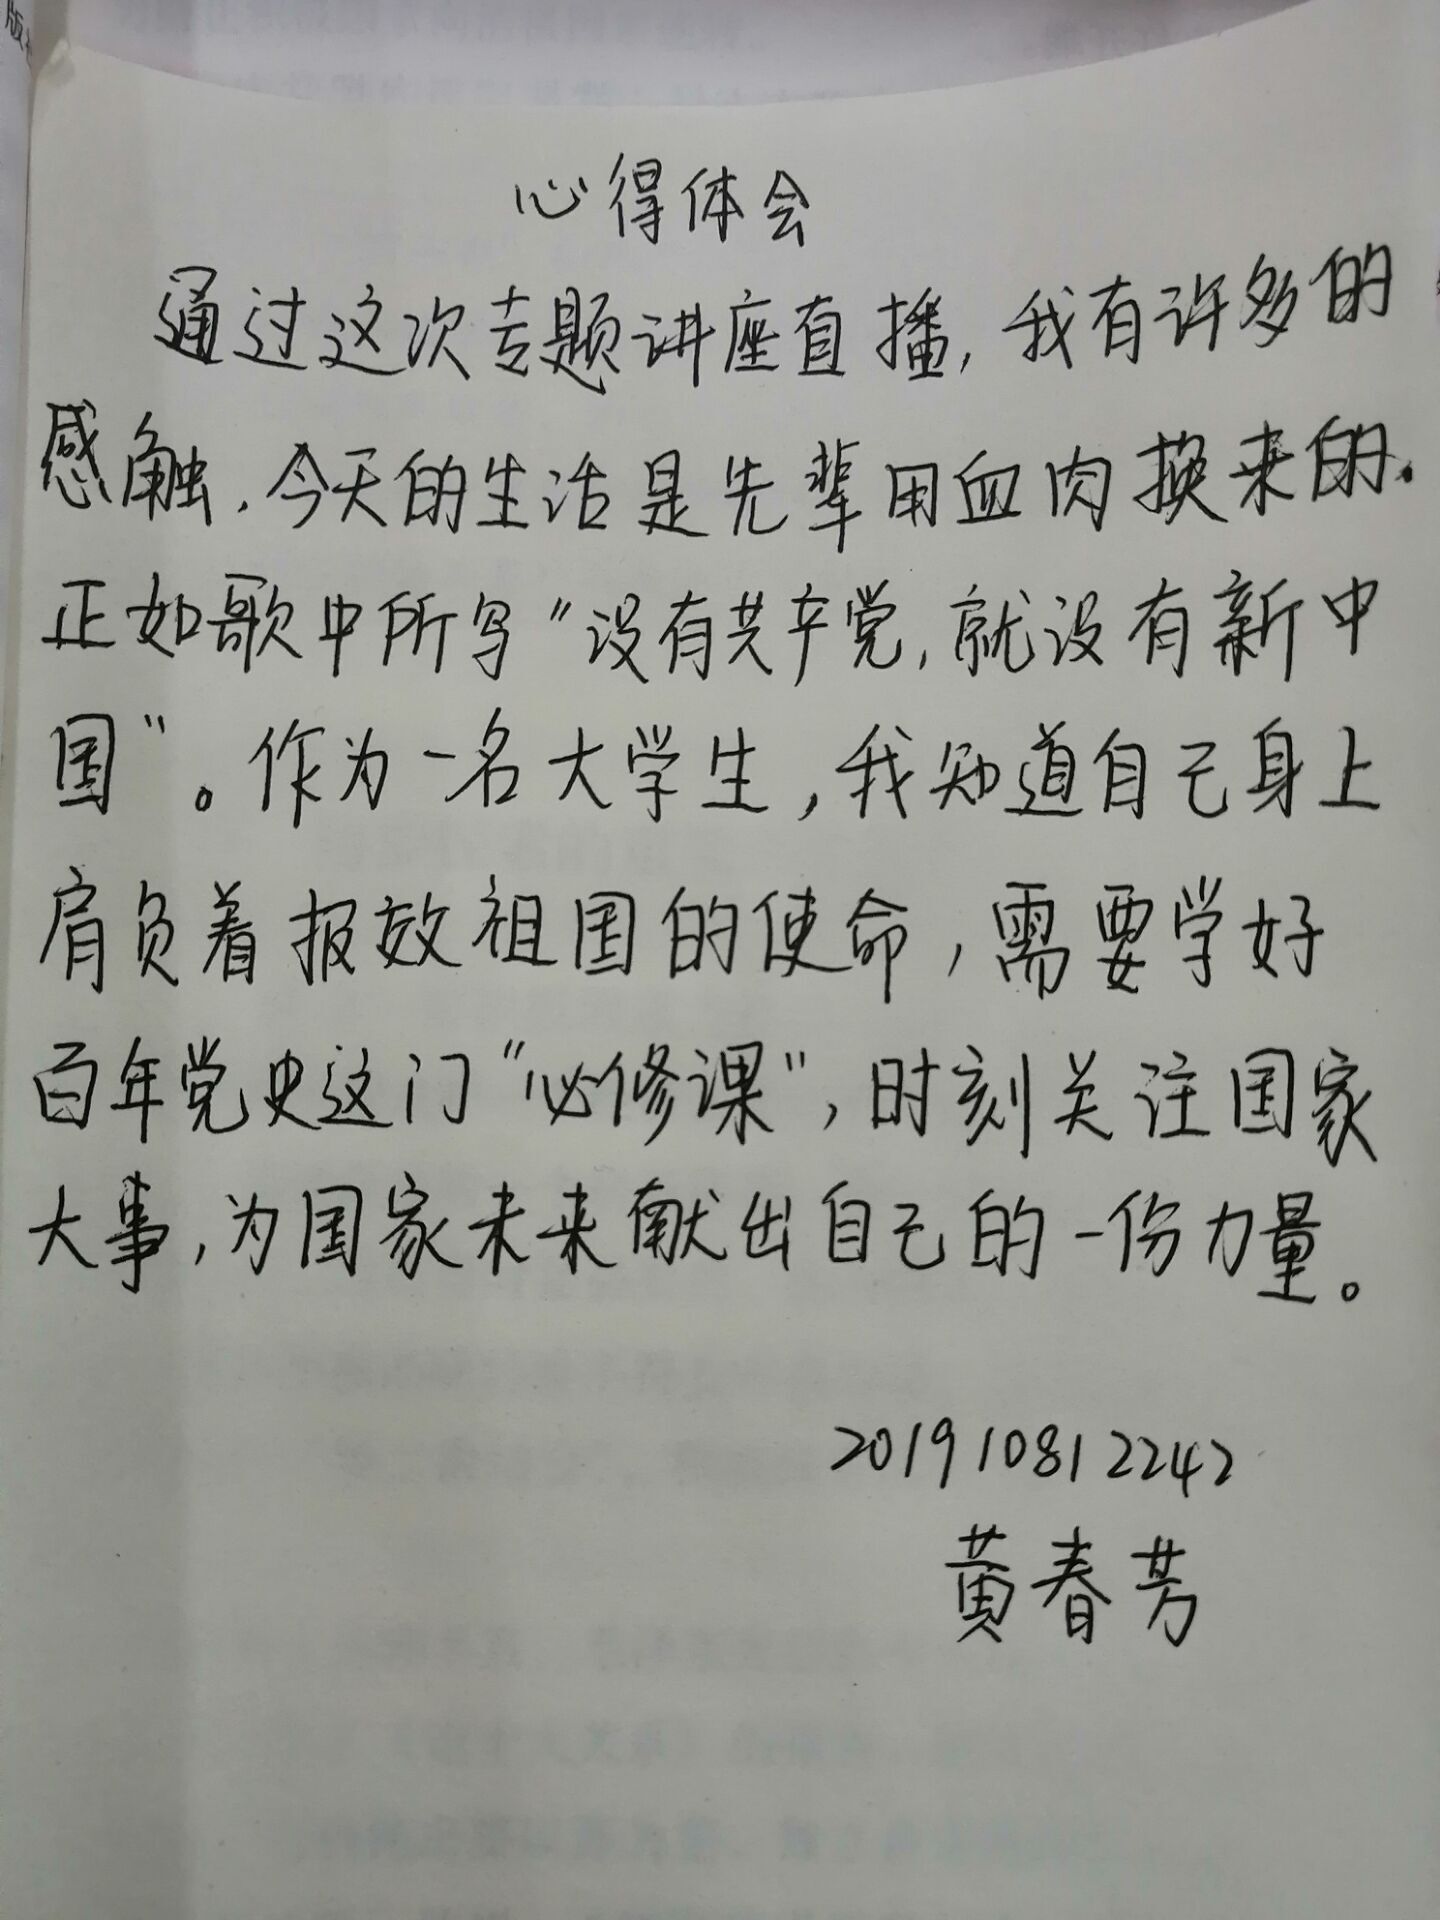 版
心得体会
通过这次专题讲座直播,我有许多的
感触,今天的生活是先辈用血肉换来的.
正如歌中所写“没有共产党,就没有新中
国”。作为一名大学生,我知道自己身上
肩负着报效祖国的使命,需要学好
百年党史这门“必修课”,时刻关注国家
大事,为国家未来献出自己的一份力量。
201910812242
黄春芳